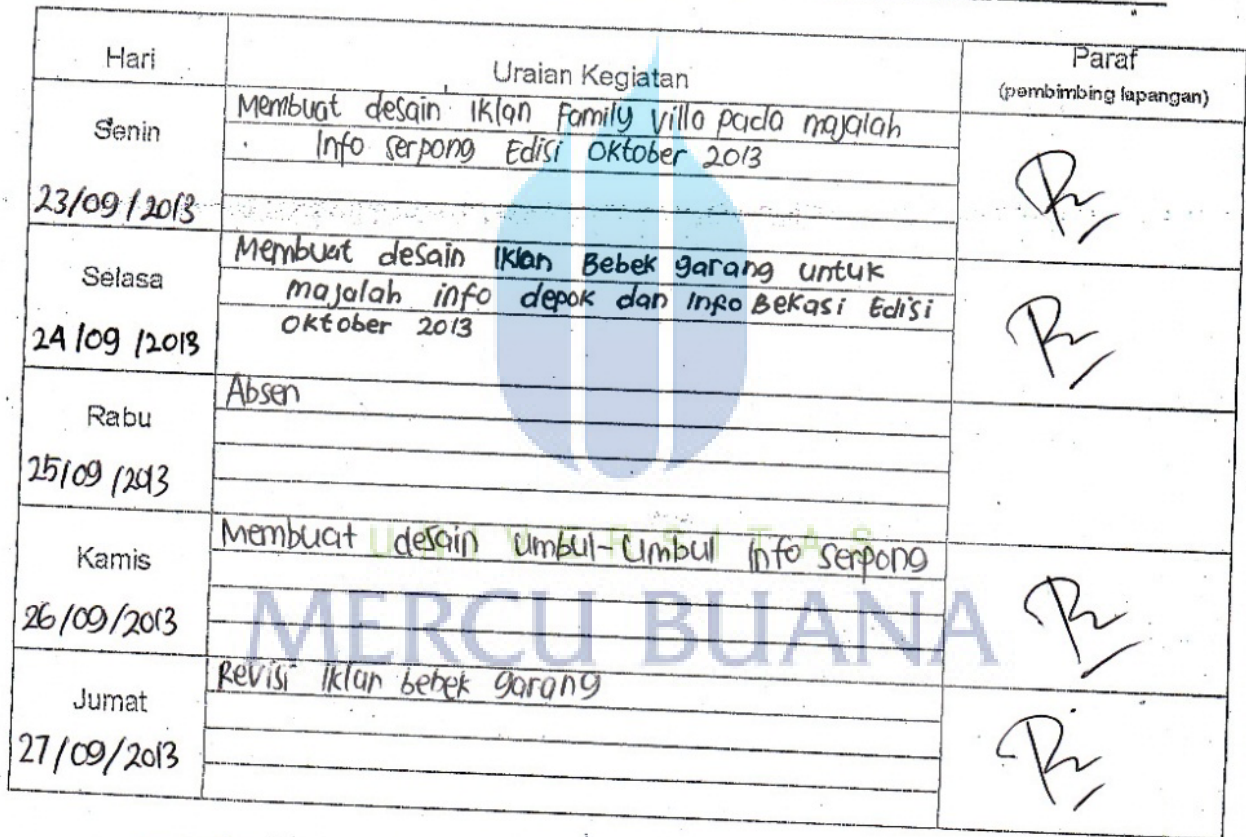 Hari
Uraian Kegiatan
Paraf
(pembimbing lapangan)
Senin
23/09/2013
Membuat desain iklan Family Villa pada majalah
Info Serpong Edisi Oktober 2013
Selasa
24/09/2013
Membuat desain Iklan Bebek garang untuk
majalah info depok dan Info Bekasi Edisi
Oktober 2013
Rabu
25/09/2013
Absen
Kamis
26/09/2013
Membuat desain Umbul-Umbul Info Serpong
Jumat
27/09/2013
Revisi Iklan bebek garang
UNIVERSITAS
MERCU BUANA